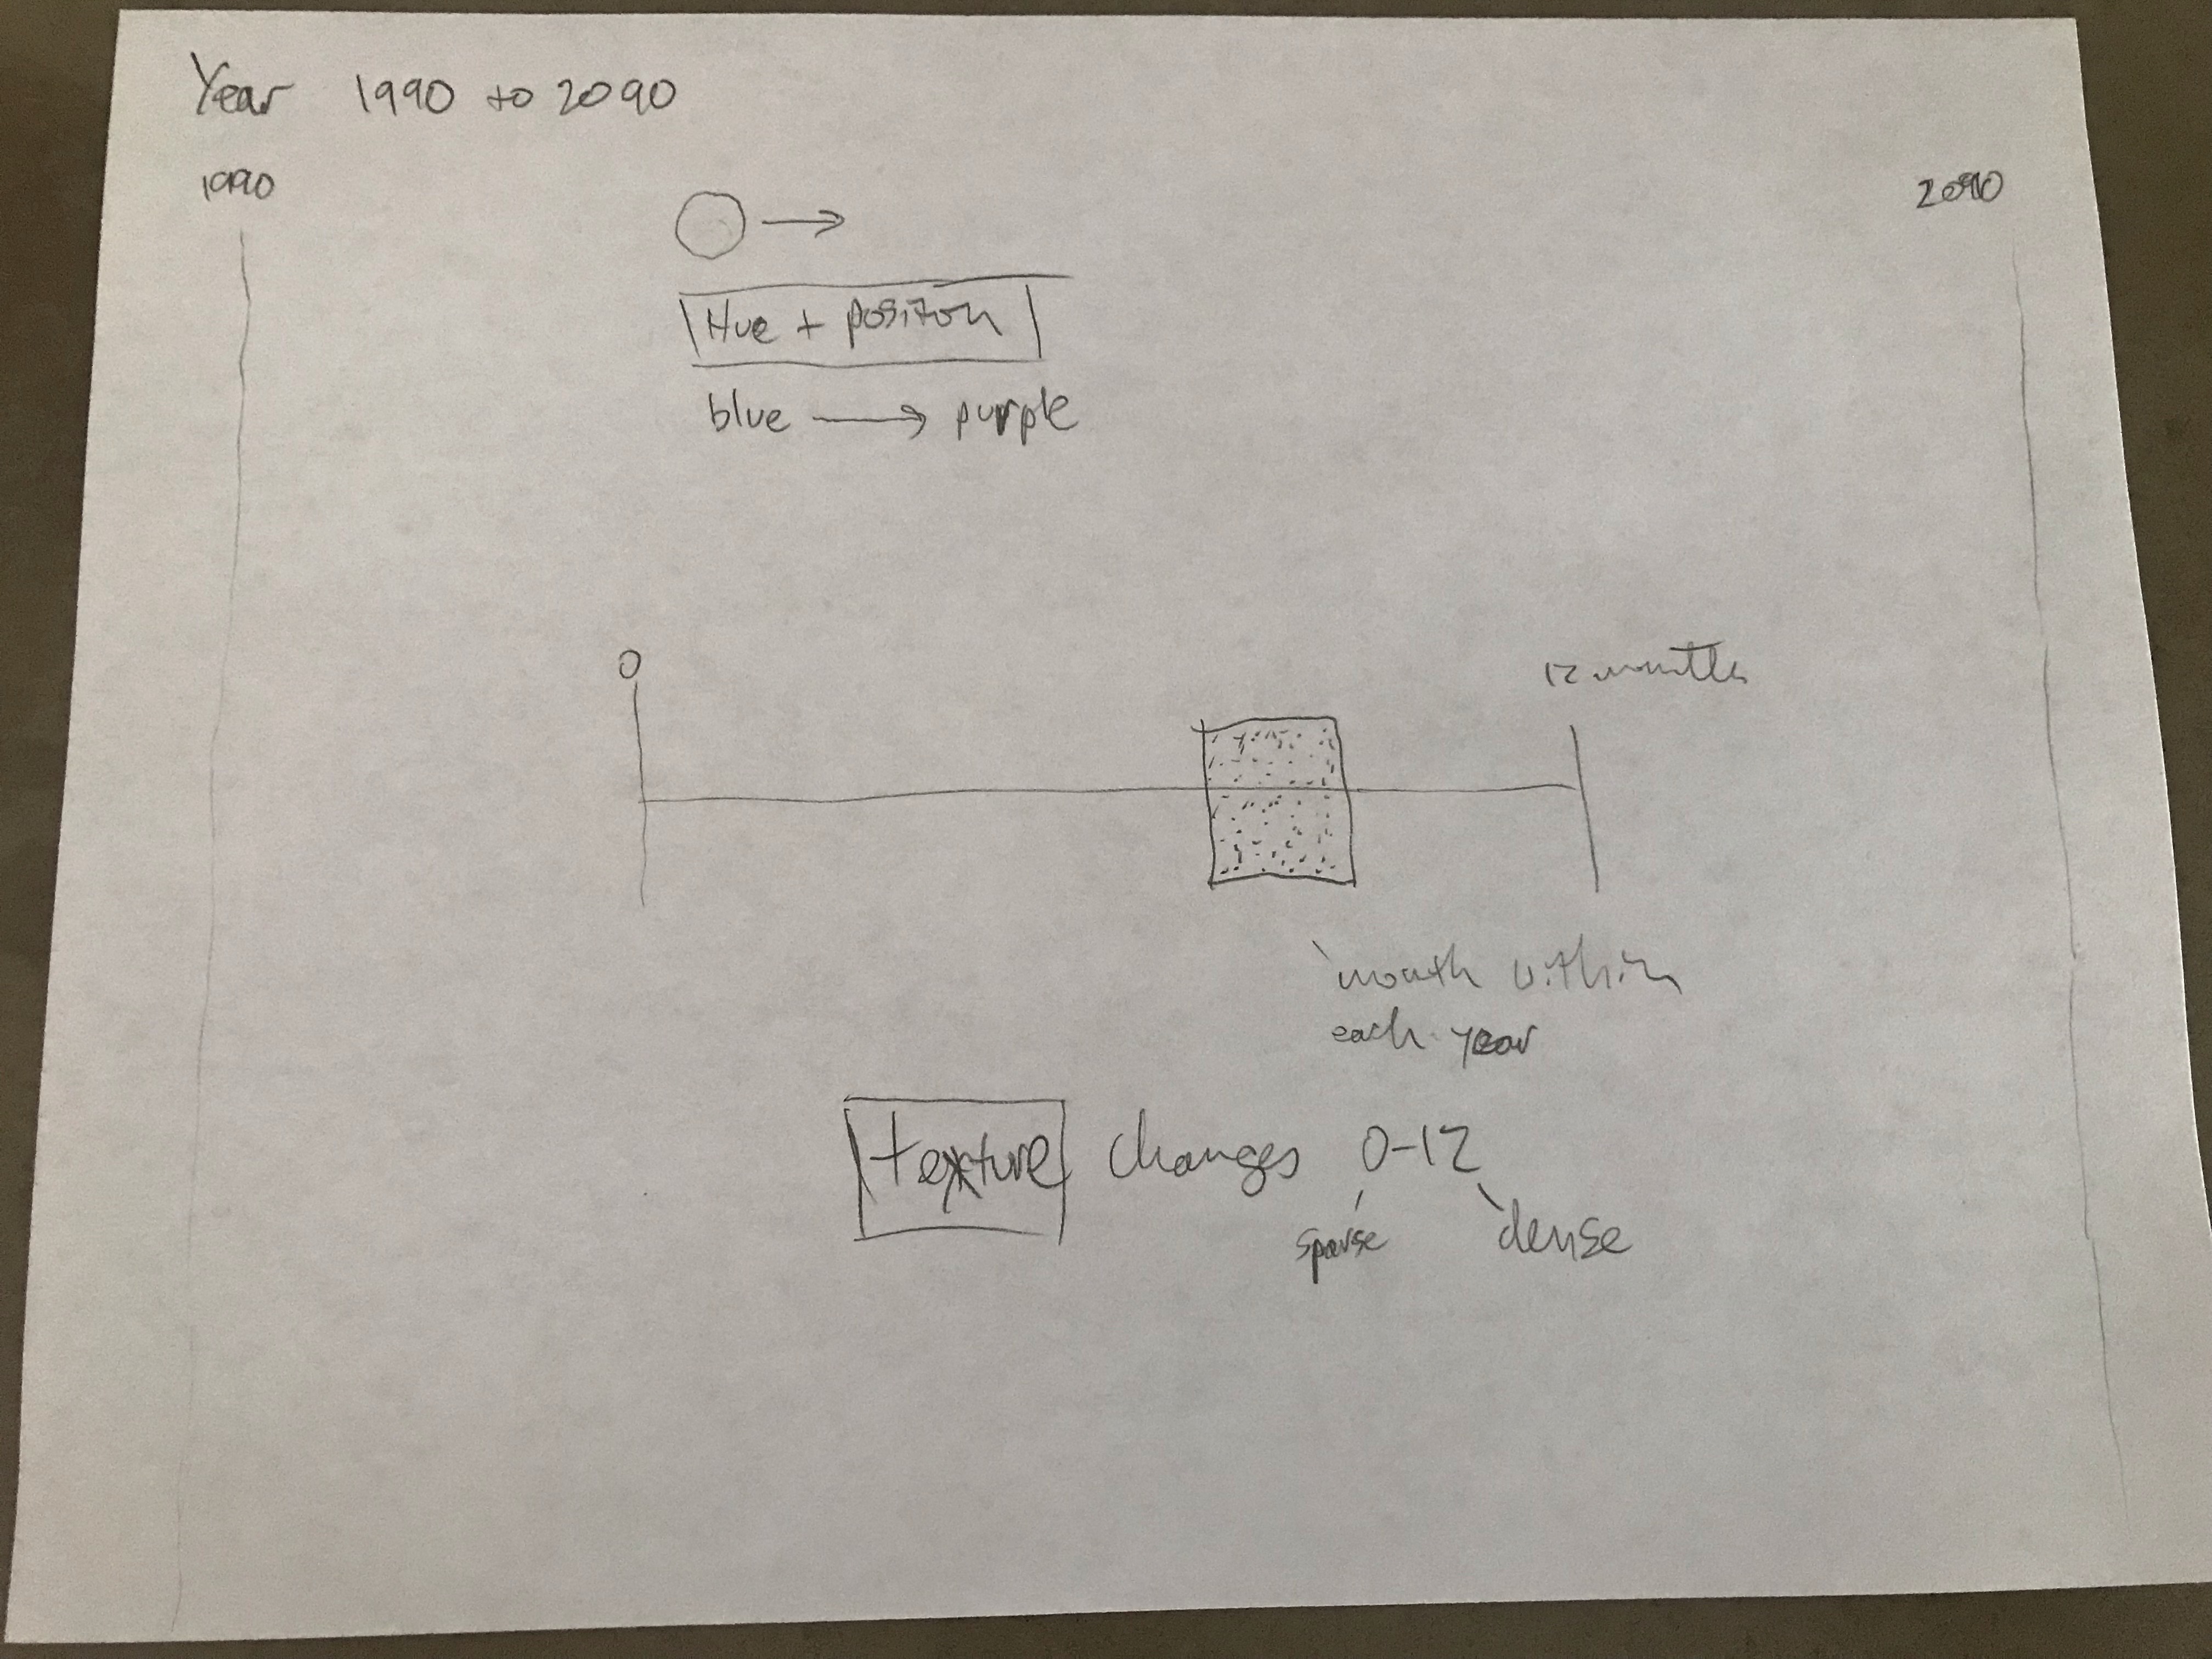 Year 1990 to 2090
1990
2090
Hue + position
blue → purple
0
12 months
month within
each year
texture changes 0-12
sparse
dense